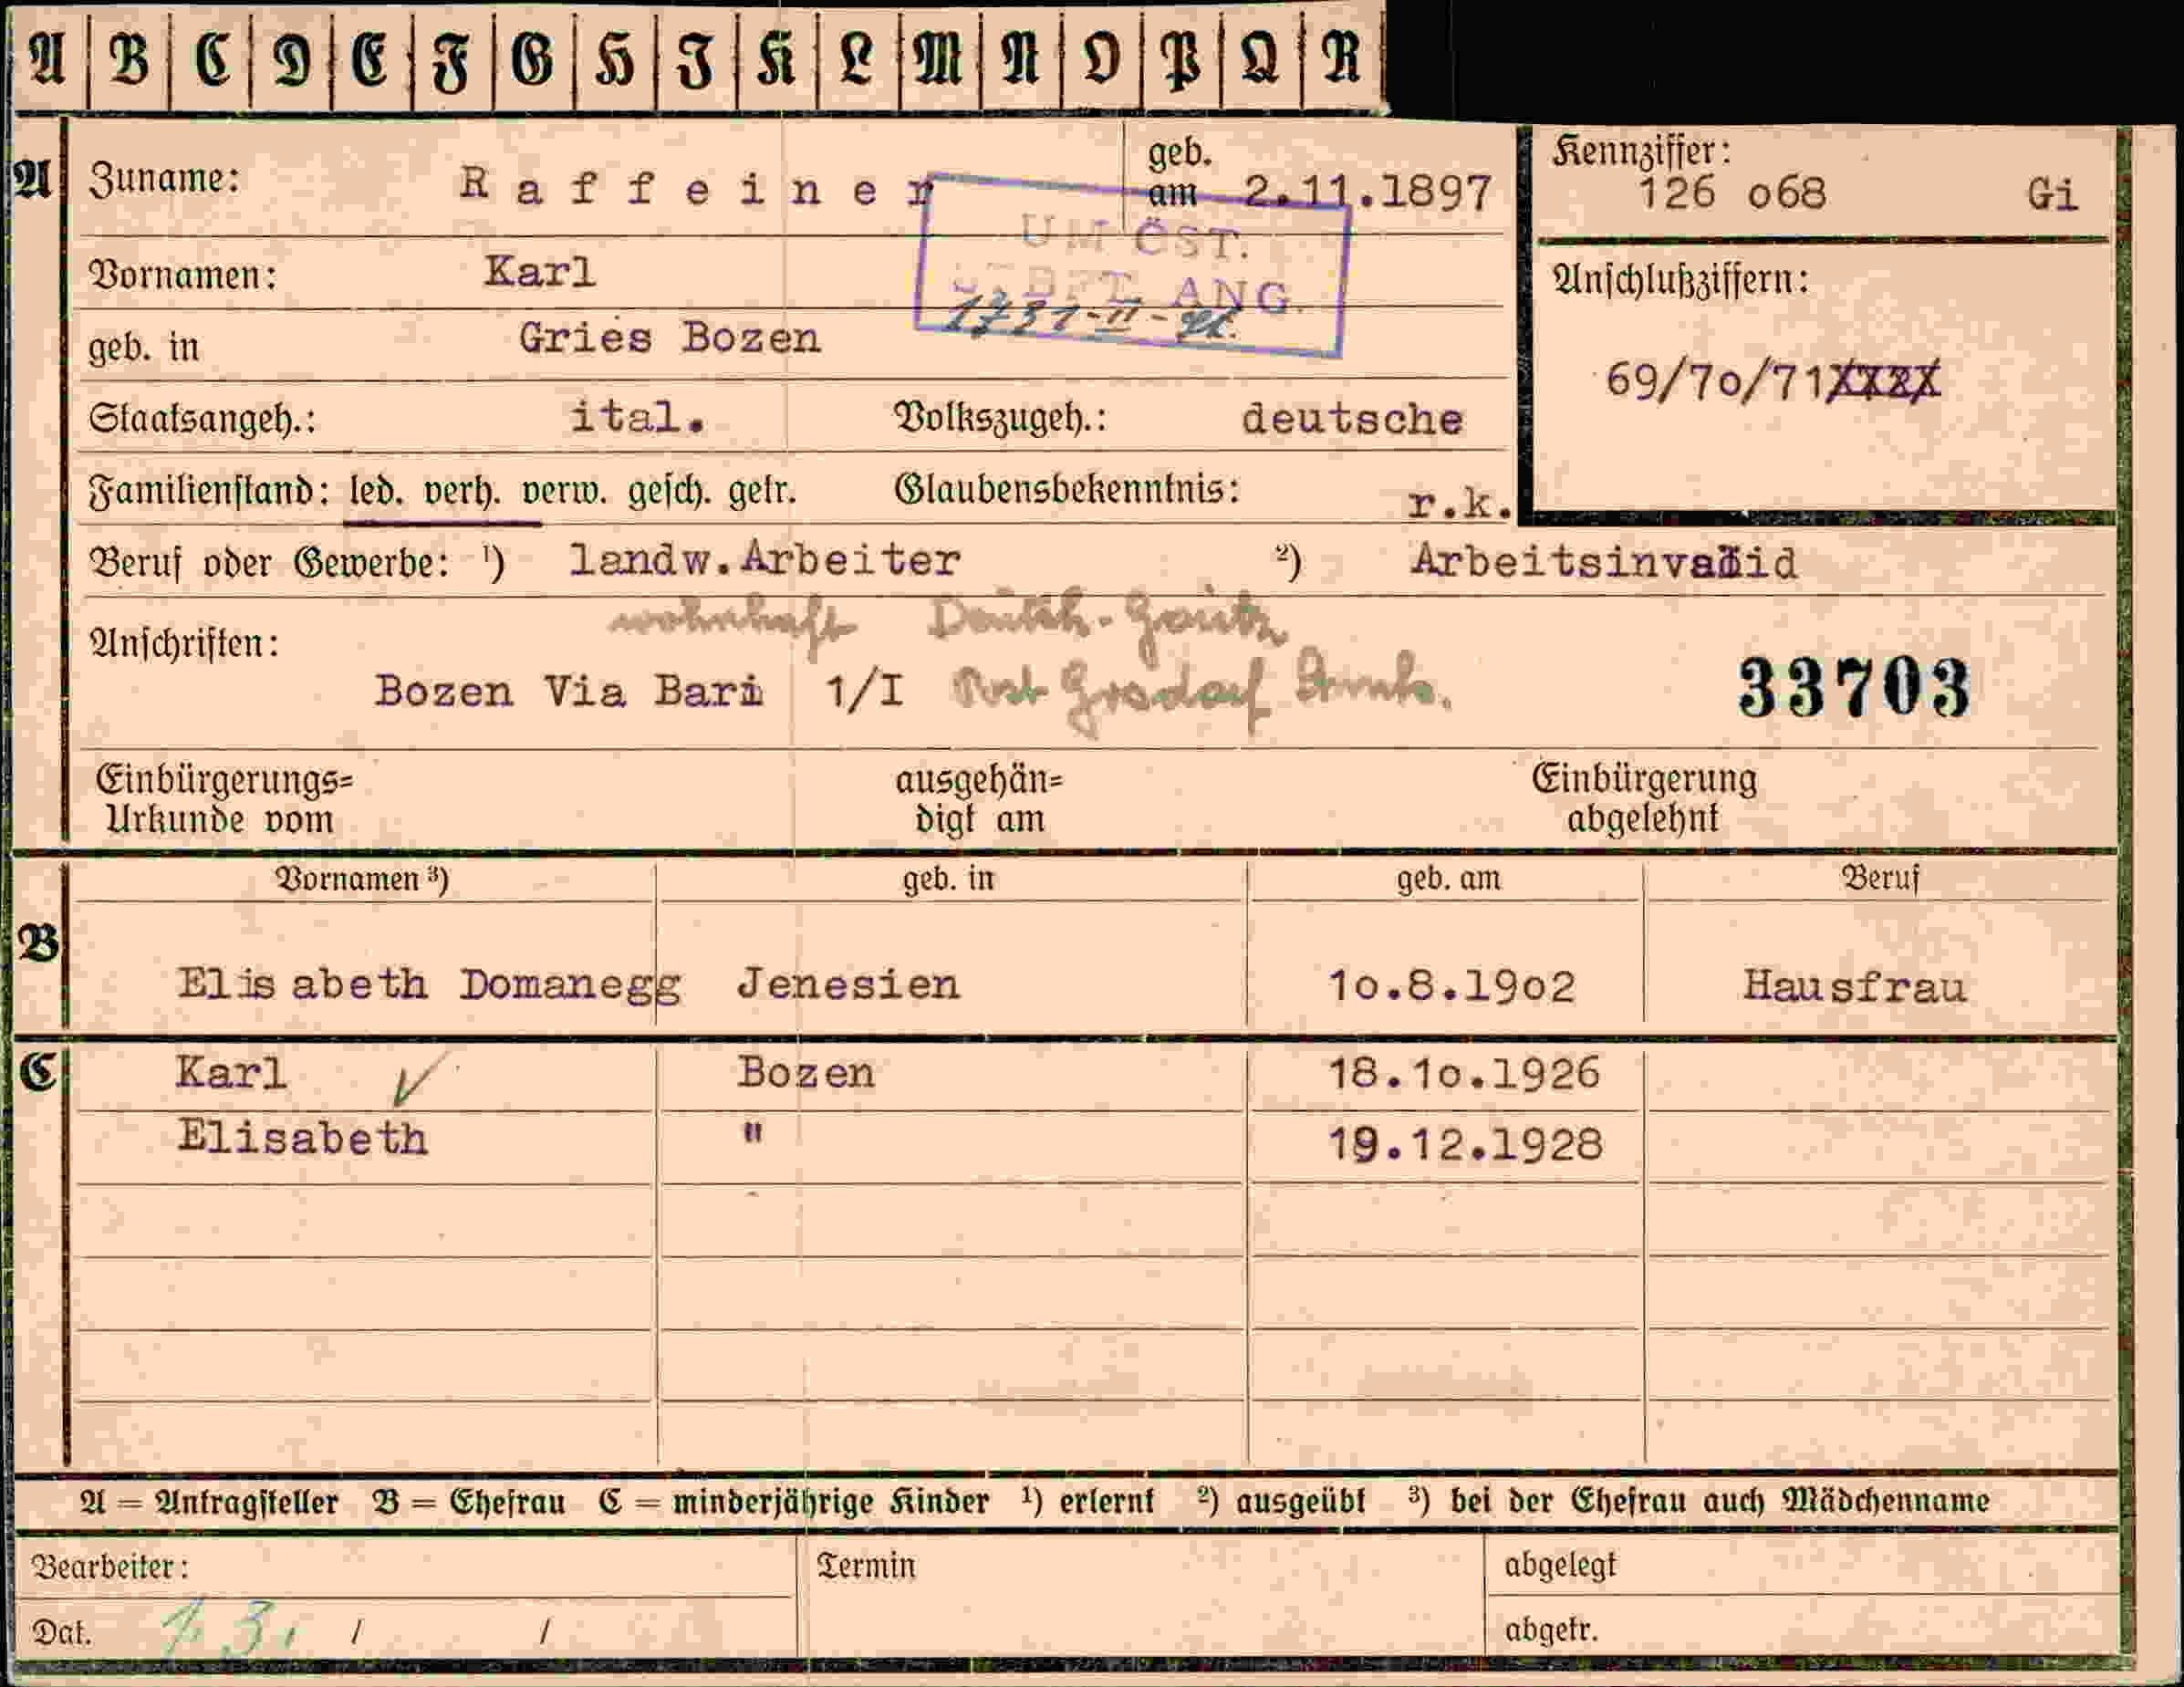 A B C D E F G H I K L M N O P Q R
A Zuname: Raffeiner geb. am 2.11.1897
Kennziffer: 126 o68 Gi
UM ÖST.
ANG.
1731-II-
Vornamen: Karl
Anschlußziffern:
geb. in Gries Bozen
69/7o/71
Staatsangeh.: ital. Volkszugeh.: deutsche
Familienstand: led. verh. verw. gesch. getr. Glaubensbekenntnis: r.k.
Beruf oder Gewerbe: ¹) landw.Arbeiter ²) Arbeitsinvalid
wohnhaft
Anschriften:
Bozen Via Bari 1/I Post
33703
Einbürgerungs= ausgehän= Einbürgerung
Urkunde vom digt am abgelehnt
Vornamen ³) geb. in geb. am Beruf
B Elisabeth Domanegg Jenesien 1o.8.19o2 Hausfrau
C Karl Bozen 18.1o.1926
Elisabeth " 19.12.1928
A = Antragsteller B = Ehefrau C = minderjährige Kinder ¹) erlernt ²) ausgeübt ³) bei der Ehefrau auch Mädchenname
Bearbeiter: Termin abgelegt
Dat. 1.3. / / abgetr.